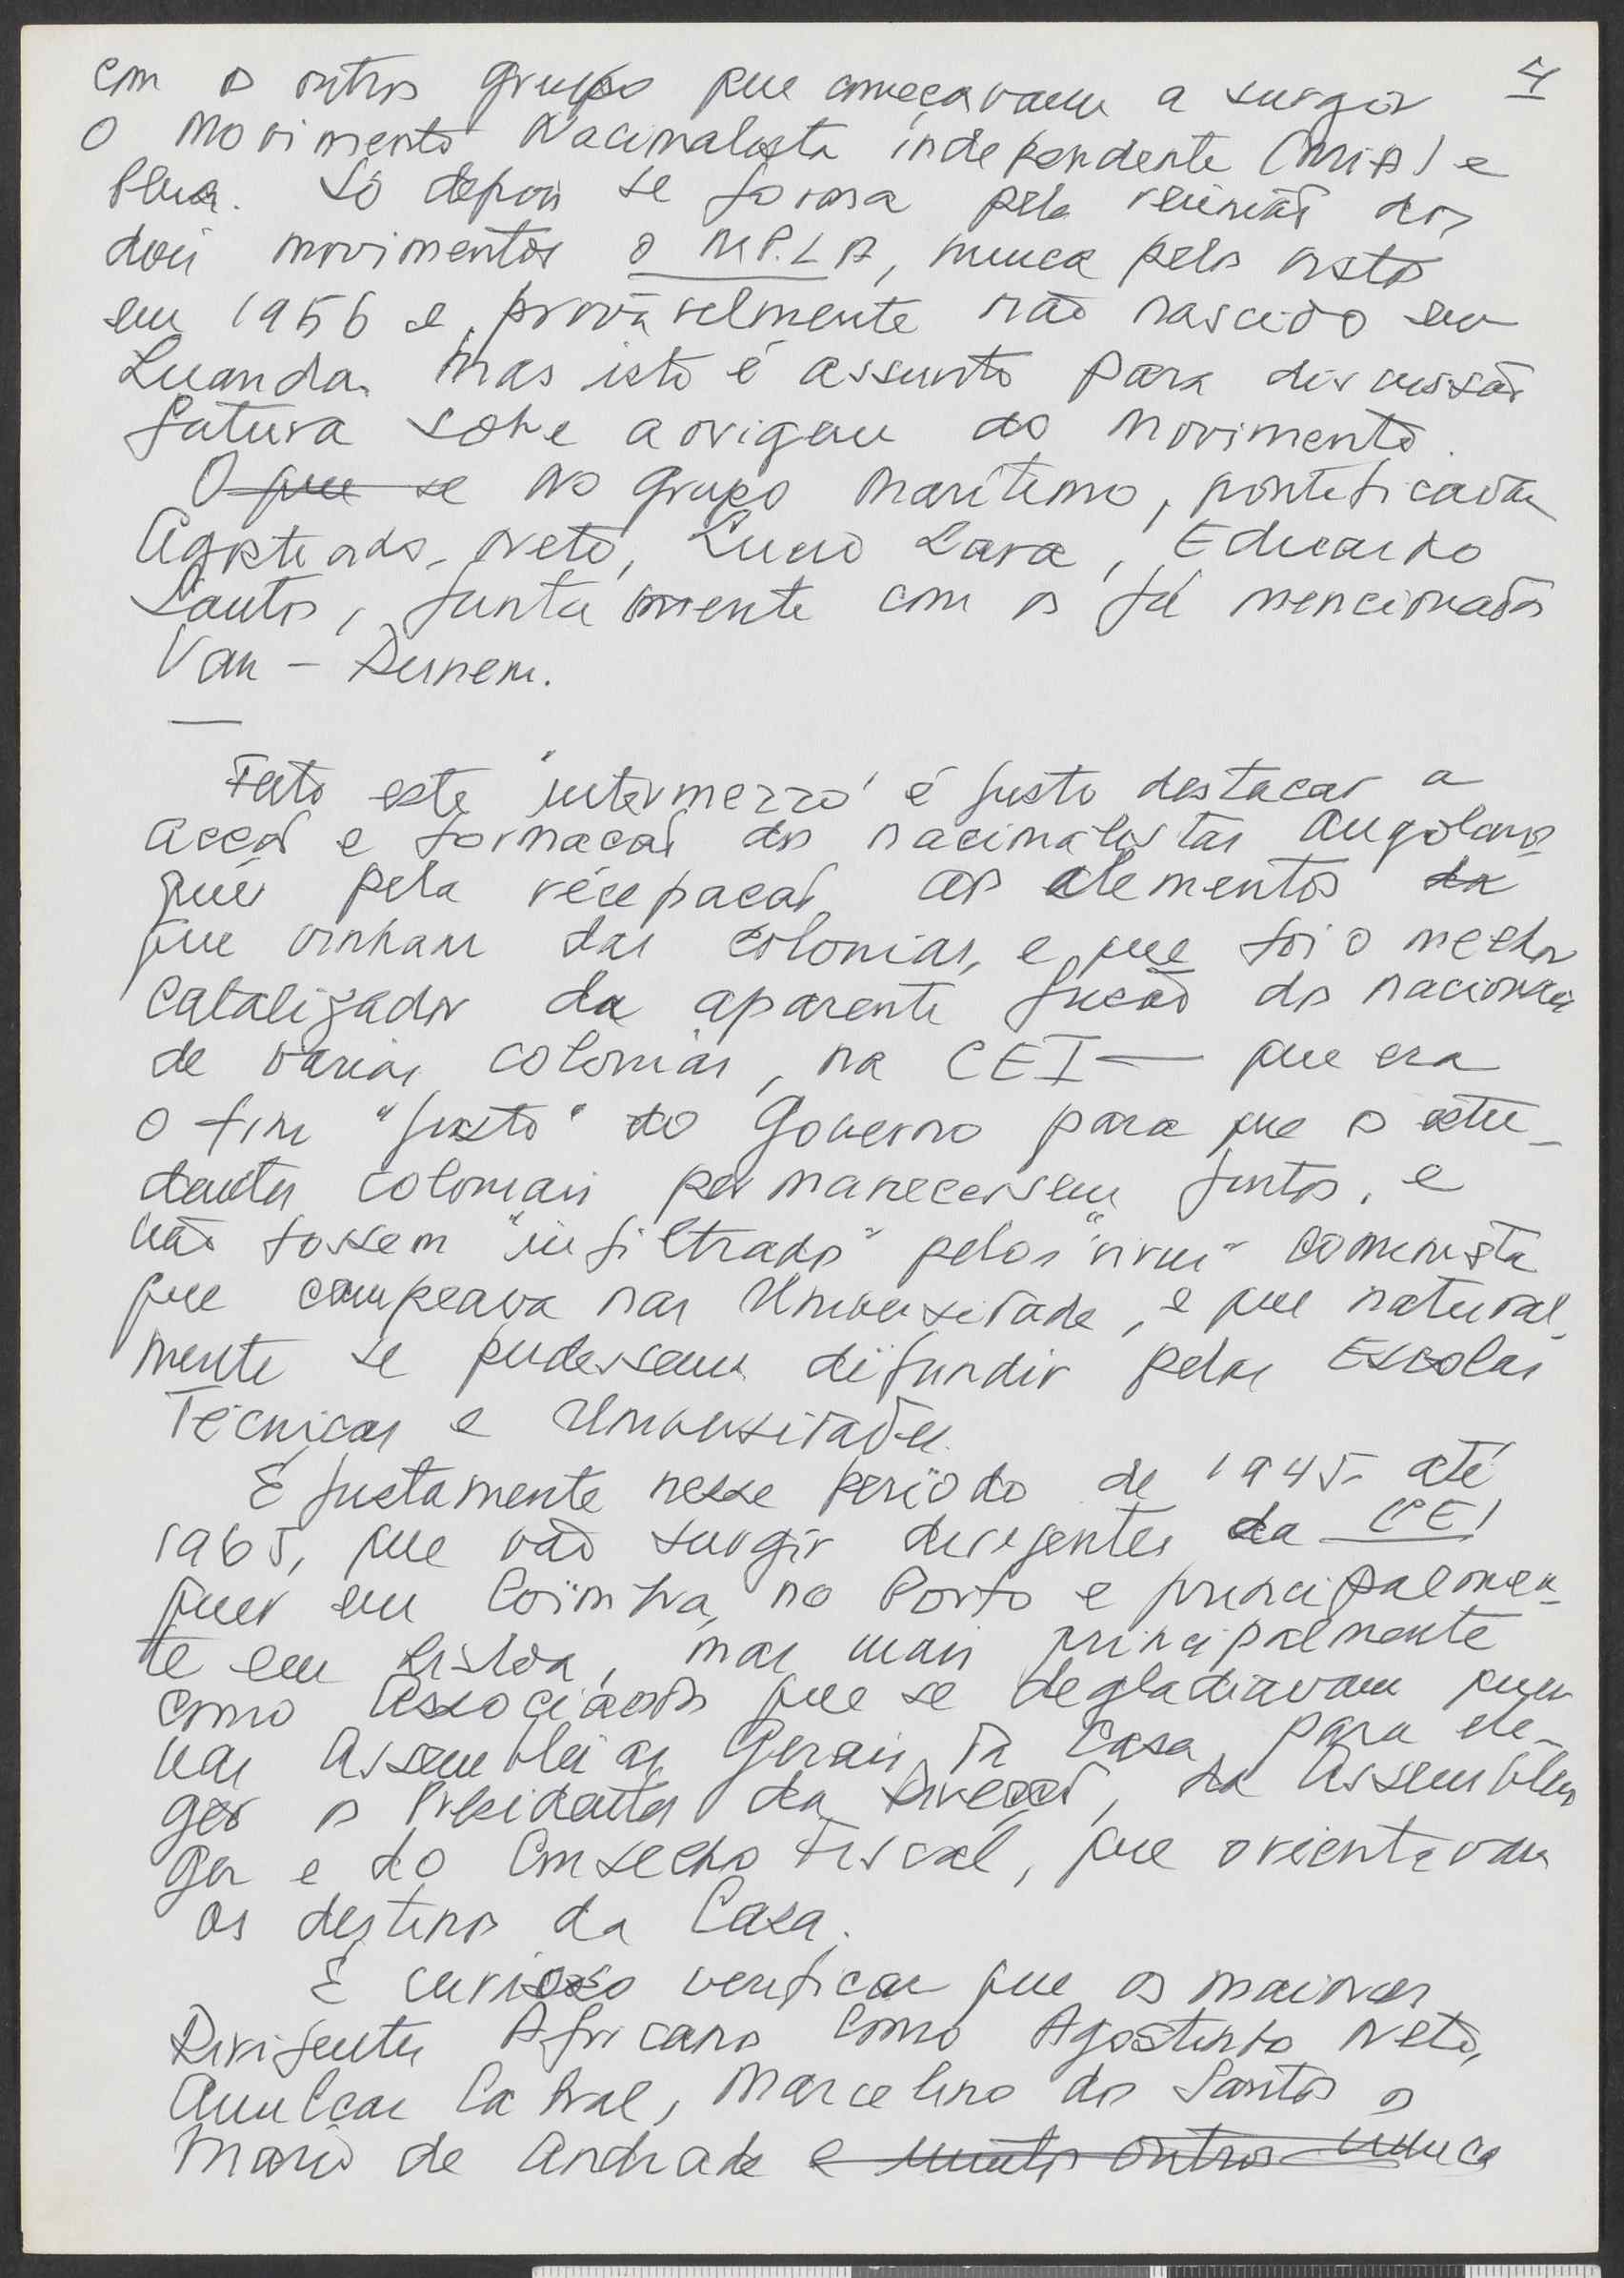 com os outros grupos que começavam a surgir 4
O Movimento Nacionalista independente (MIA) e
Plua. Só depois se forma pela reunião dos
dois movimentos o M.P.L.A, nunca pelo visto
em 1956 e, provàvelmente não nascido em
Luanda. Mas isto é assunto para discussão
futura sobre a origem do movimento.
O que se no grupo marítimo, pontificavam
Agostinho Neto, Lucio Lara, Eduardo
Santos, juntamente com os já mencionados
Van-Dunem.
—
Feito este "intermezzo" é justo destacar a
acção e formação dos nacionalistas Angolanos
quer pela recepação aos elementos da
que vinham das colonias, e que foi o melhor
catalizador da aparente fusão dos nacionais
de varias colonias, na CEI — que era
o fim "justo" do Governo para que os estu-
dantes coloniais permanecessem juntos, e
não fossem "infiltrados" pelos "virus" comunista
que campeava nas Universidade, e que natural-
mente se pudessem difundir pelas Escolas
Técnicas e Universidades.
É justamente nesse período de 1945 até
1965, que vão surgir dirigentes da CEI
quer em Coimbra, no Porto e principalmen-
te em Lisboa, mas mais principalmente
como Associações que se degladiavam quer
nas Assembleias Gerais da Casa, para ele-
ger os Presidentes da Direcção, da Assembleia
Ger e do Conselho Fiscal, que orientavam
os destinos da Casa.
É curioso verificar que os maiores
Dirigentes Africanos como Agostinho Neto,
Amilcar Cabral, Marcelino dos Santos, os
Mario de Andrade e muitos outros nunca